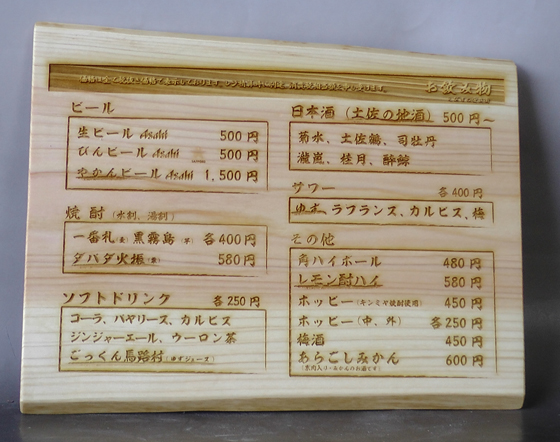 お飲み物
ビール
生ビール Asahi 500円
びんビール Asahi 500円
やかんビール Asahi 1,500円
焼酎（水割、湯割）
一番札（麦）黒霧島（芋）各400円
ダバダ火振（栗）580円
ソフトドリンク 各250円
コーラ、バヤリース、カルピス
ジンジャーエール、ウーロン茶
ごっくん馬路村（ゆずジュース）
日本酒（土佐の地酒）500円～
菊水、土佐鶴、司牡丹
瀧嵐、桂月、酔鯨
サワー 各400円
ゆず、ラフランス、カルピス、梅
その他
角ハイボール 480円
レモン酎ハイ 580円
ホッピー（キンミヤ焼酎使用）450円
ホッピー（中、外）各250円
梅酒 450円
あらごしみかん 600円